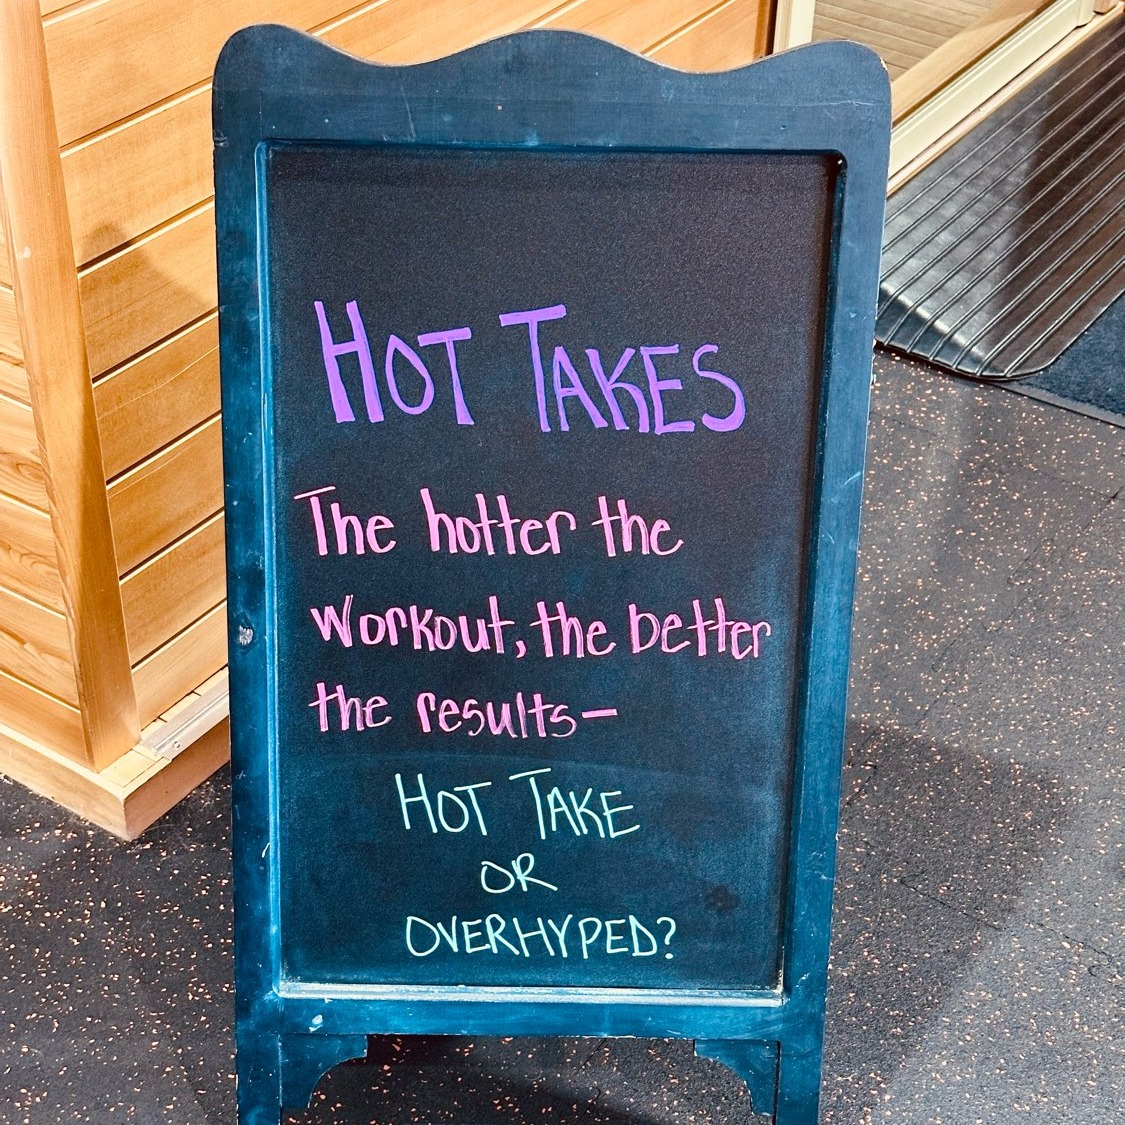 HOT TAKES
The hotter the
workout, the better
the results-
HOT TAKE
OR
OVERHYPED?